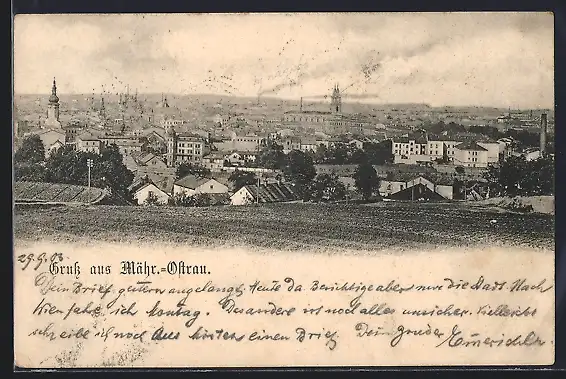 29.9.03
Gruß aus Mähr.-Ostrau.
Dein Brief gestern angelangt. Heute Da. Berichtige aber nur die Nach
Wien fahr ich Montag. Das andere ist noch alles unsicher. Vielleicht
schreibe ich noch aus einen Brief. Dein Bruder Emerich